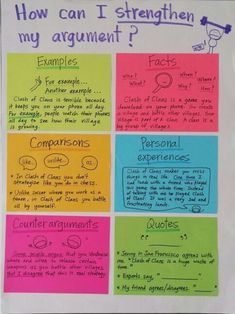 How can I strengthen
my argument?
Examples
For example...
Another example...
Clash of Clans is terrible because
it keeps you on your phone all day.
For example, people watch their phones
all day to see how their village
is growing.
Facts
Who?
What?
When?
Where?
Why?
Clash of Clans is a game you
download on your phone. You create
a village and battle other villages. Your
village is part of a clan. A clan is a
big group of villages.
Comparisons
like
unlike
as
In Clash of Clans you don't
strategize like you do in chess.
Unlike soccer where you work as a
team, in Clash of Clans you battle
all by yourself.
Personal
experiences
Clash of Clans makes you miss
things in real life. One time I
had lunch with a friend who played
this game the whole time. Instead
of talking with me he played Clash
of Clans. It was a very sad and
frustrating lunch.
Counterarguments
Some people argue that you strategize
where and when to release certain
weapons as you battle other villages.
But I disagree that this is real strategy.
Quotes
Jenny in San Francisco agrees with
me. "Clash of Clans is a huge waste of
time."
Experts say, "
My friend agrees/disagrees "